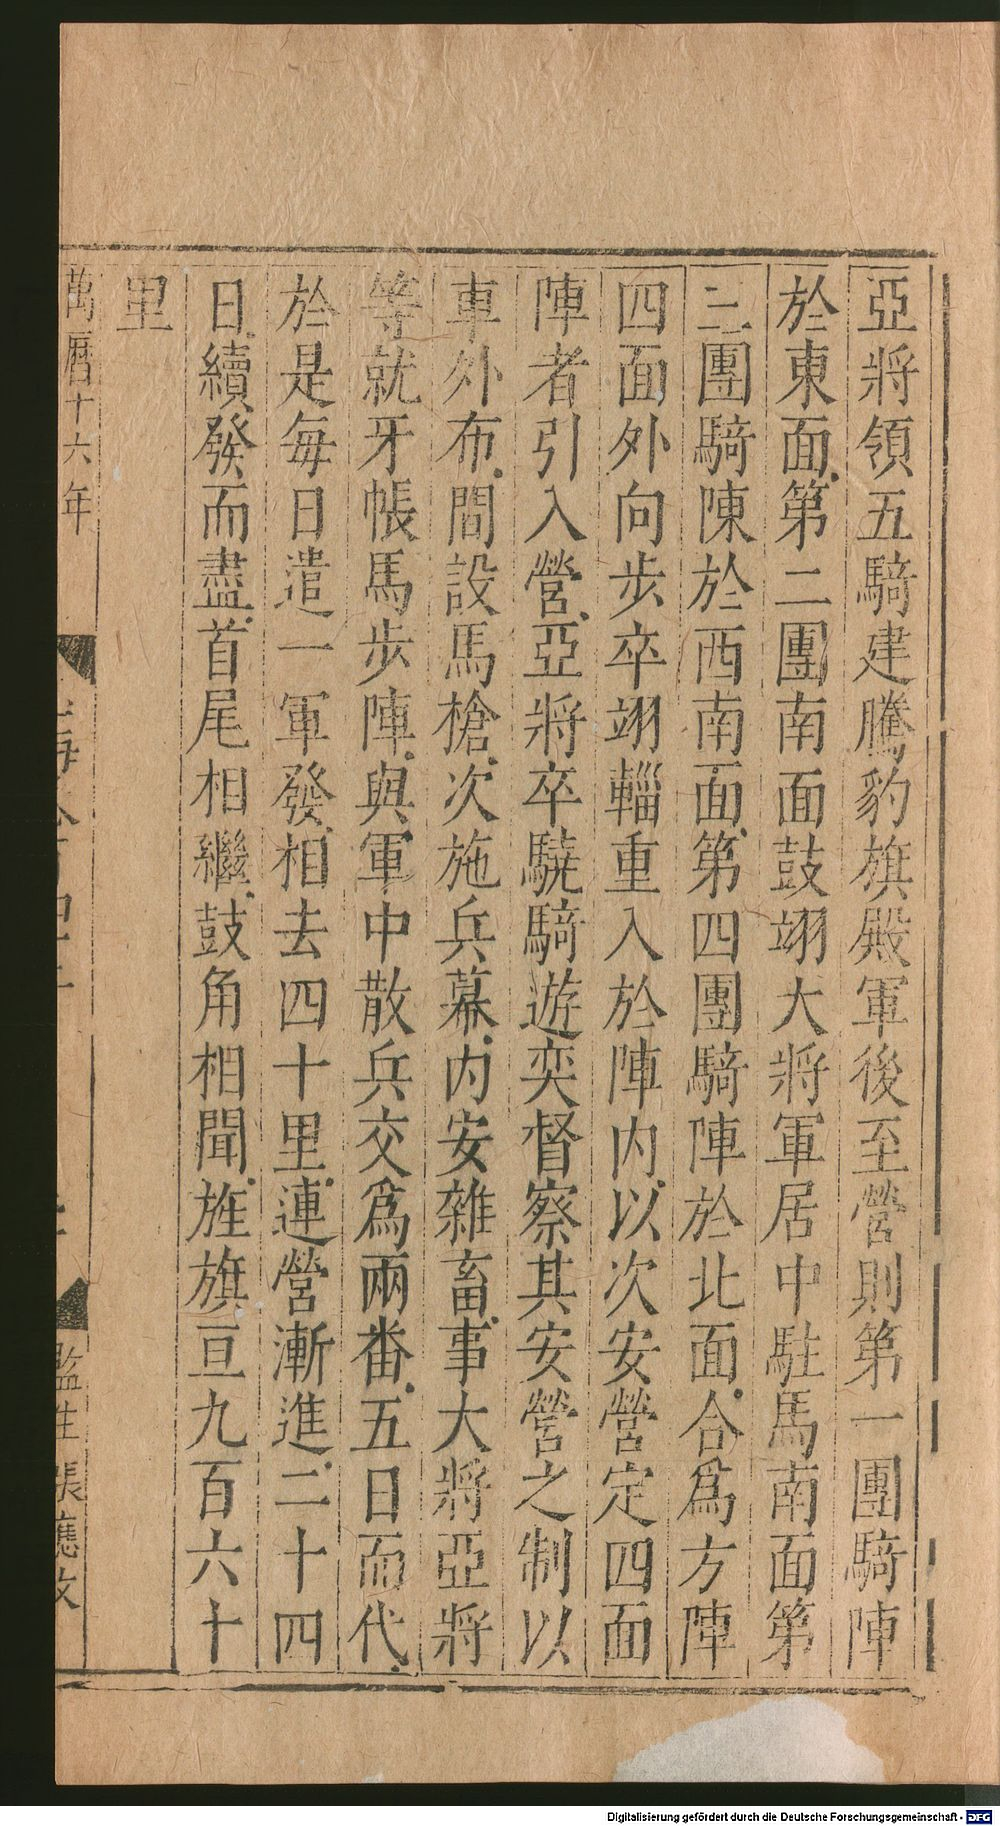 亞將領五騎建騰豹旗殿軍後至營則第一團騎陣
於東面第二團南面鼓翊大將軍居中駐馬南面第
三團騎陳於西南面第四團騎陣於北面合爲方陣
四面外向步卒翊輜重入於陣内以次安營定四面
陣者引入營亞將卒驍騎遊奕督察其安營之制以
車外布間設馬槍次施兵幕内安雜畜事大將亞將
等就牙帳馬步陣與軍中散兵交爲兩番五日而代
於是每日遣一軍發相去四十里連營漸進二十四
日續發而盡首尾相繼鼓角相聞旌旗亘九百六十
里
萬曆十六年
監生張應文
Digitalisierung gefördert durch die Deutsche Forschungsgemeinschaft - DFG